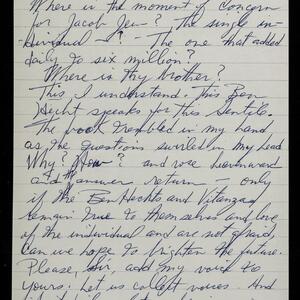 Where is the moment of concern
for Jacob Jew-? The single in-
dividual -? - The one that added
daily to six million?
Where is thy brother?
This I understand. This Ben
Hecht speaks for this Gentile.
The book trembled in my hand
as the questions swirled in my head
Why? How? and rose heavenward
and the answer return - only
if the Ben Hechts and
remain true to themselves and love
of the individual and are not afraid,
can we hope to brighten the future.
Please, Sir, add my voice to
yours. Let us collect voices. And